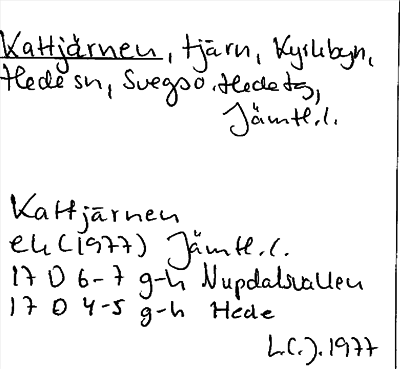 Kattjärnen, tjärn, Kyrkbyn,
Hede sn, Svegso. Hede tg,
Jämtl.l.
Kattjärnen
ek (1977) Jämtl.l.
17 D 6-7 g-h Nupdalsvallen
17 D 4-5 g-h Hede
1977